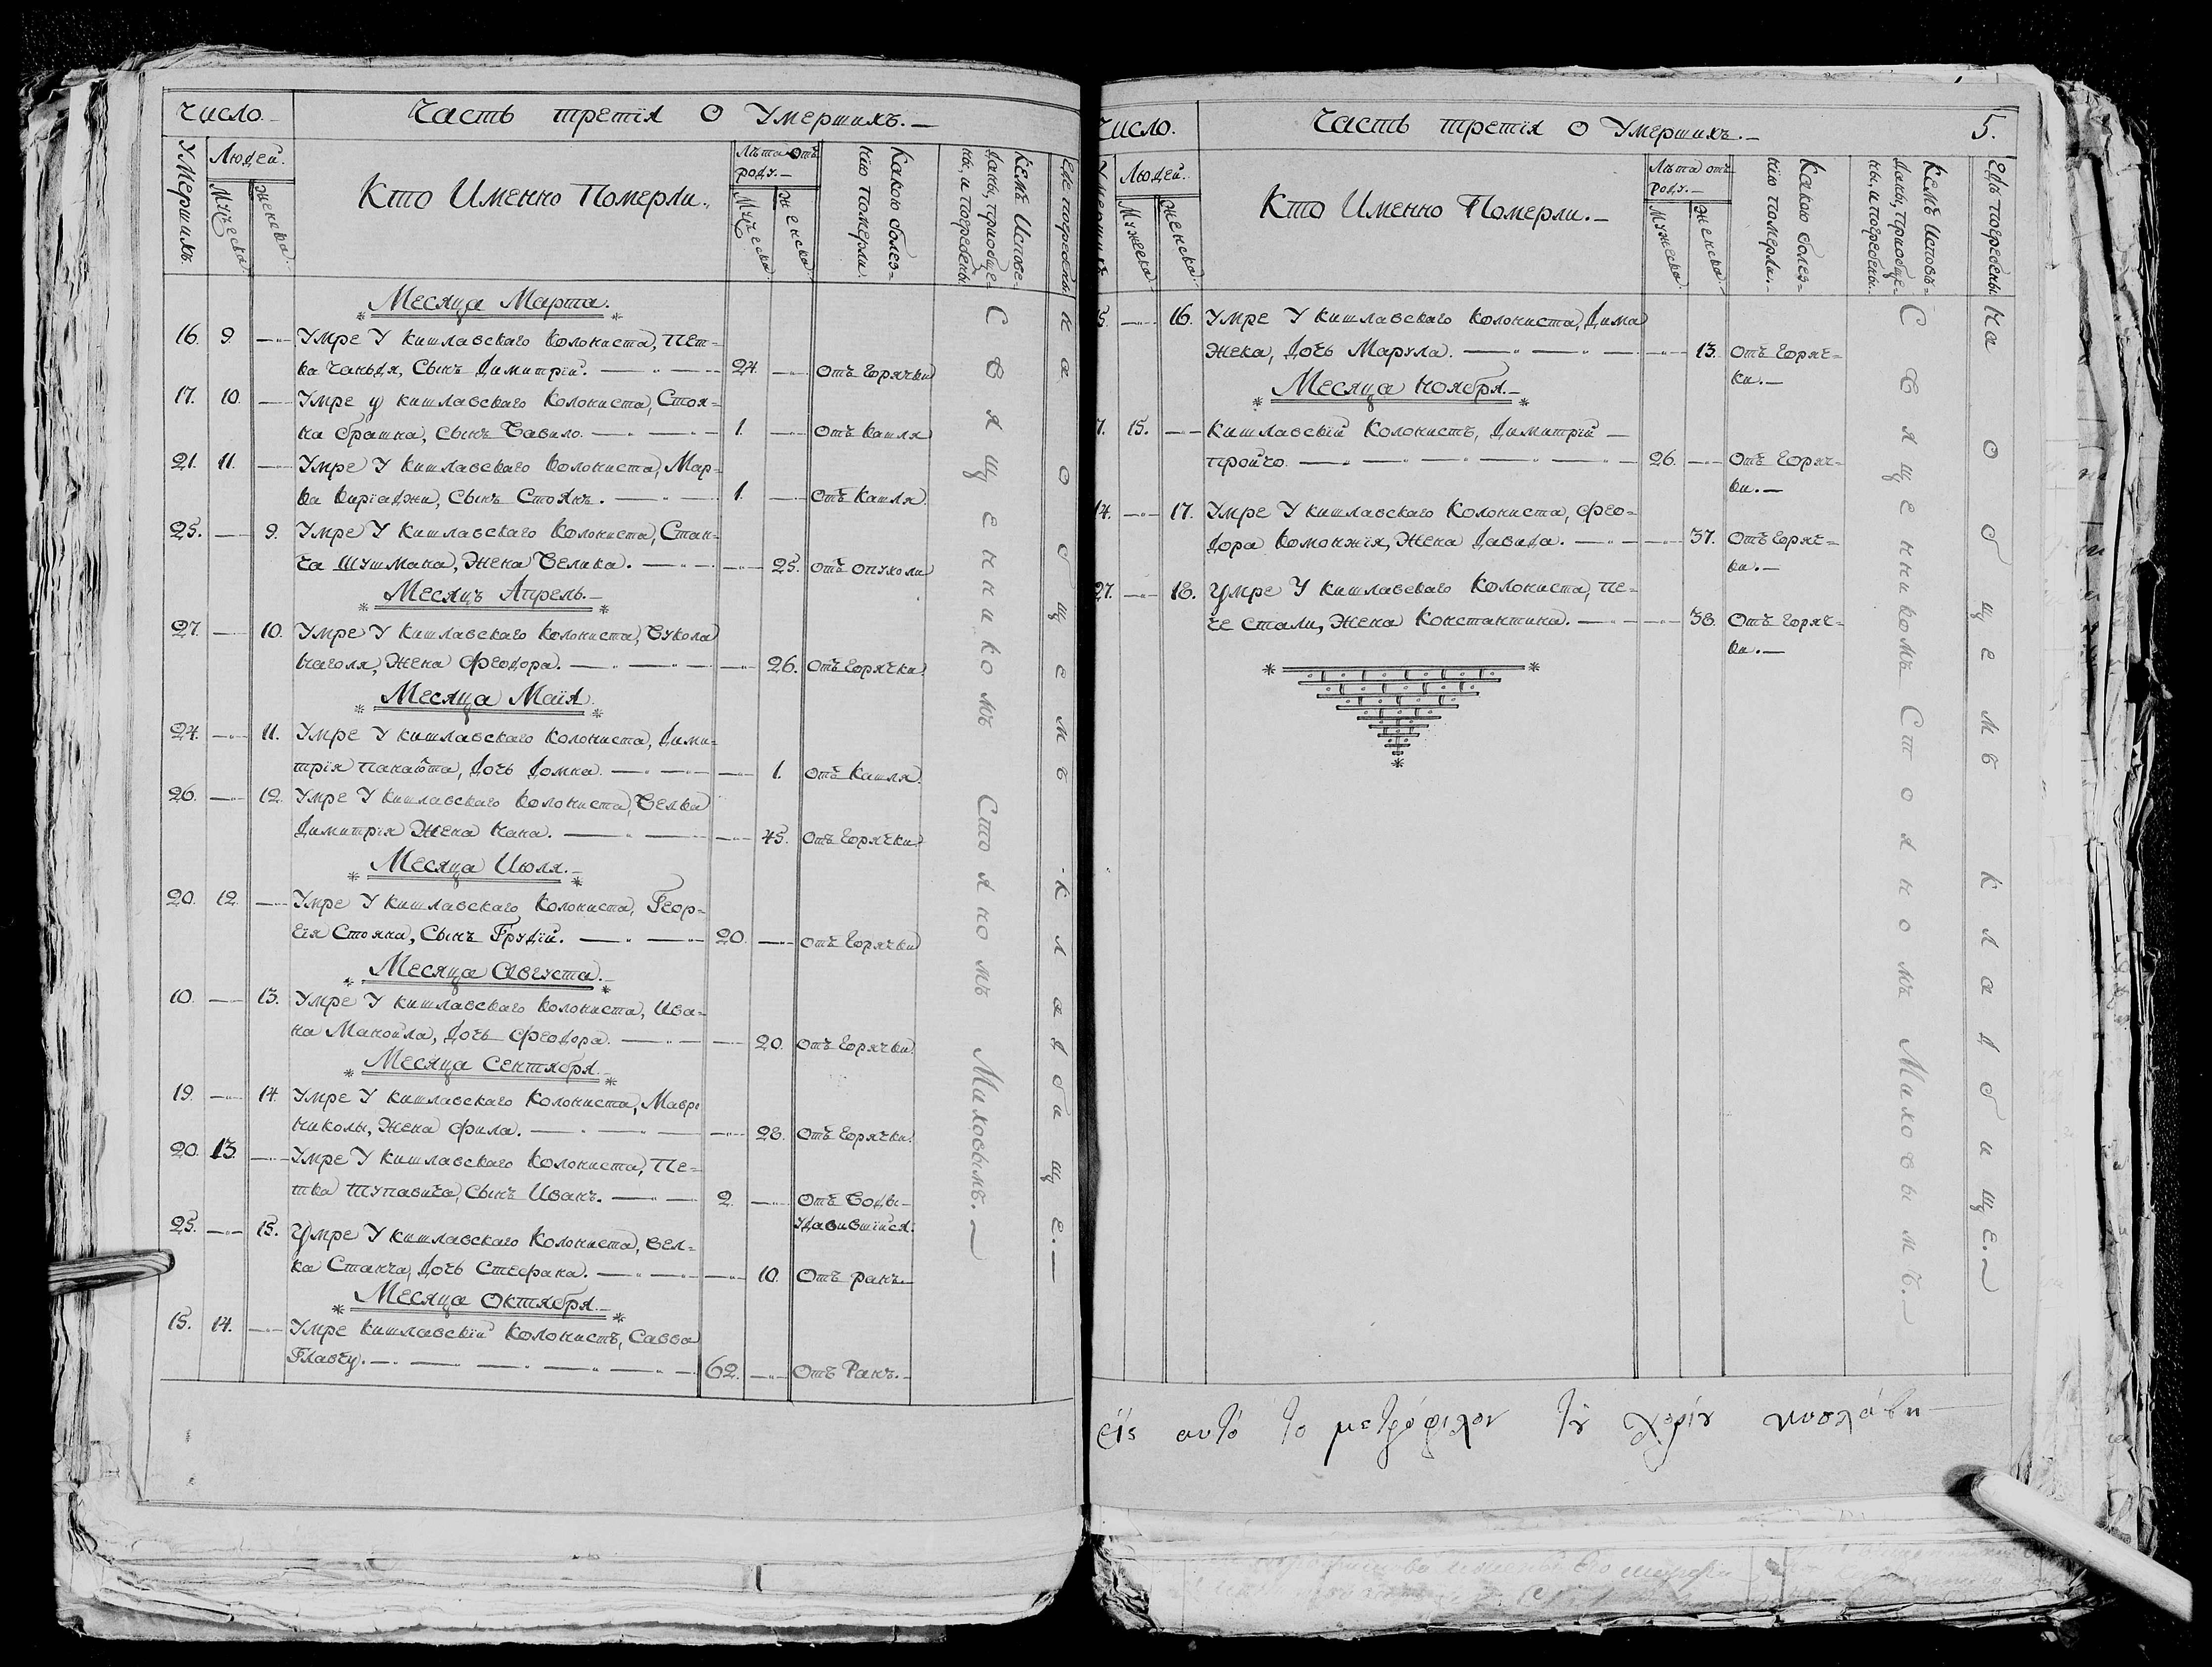 Число.
Часть третїя о Умершихъ.
Умершихъ.
Людей.
Мужеска.
Женска.
Кто Именно Померли.
Лѣта отъ
роду.
Мужеска.
Женска.
Какою болез=
нїю померли
Кемъ Исповѣ=
даны, приобще=
ны, и погребены
Где погребены
Месяца Марта.
16. 9. Умре У кишлавскаго Колониста, Пет=
ка Чаньдя, Сынъ Димитрїй. 24. Отъ Горячки
17. 10. Умре у кишлавскаго Колониста, Стоя=
на брашна, Сынъ Вавило. 1. Отъ Кашля
21. 11. Умре У Кишлавскаго Колониста, Мар=
ка Кирїаджи, Сынъ Стоянъ. 1. Отъ Кашля.
25. 9. Умре У Кишлавскаго Колониста, Стан=
ча Шушмана, Жена Велика. 25. Отъ опухоли
Месяцъ Апрель.
27. 10. Умре У Кишлавскаго Колониста, Вукола
Чаголя, Жена Феодора. 26. Отъ Горячки.
Месяца Маїя.
24. 11. Умре У кишлавскаго Колониста, Дими=
трїя Панаѡта, Дочь Домна. 1. Отъ Кашля.
26. 12. Умре У кишлавскаго Колониста, Велка
Димитрїя Жена Нана. 45. Отъ Горячки.
Месяца Июля.
20. 12. Умре У кишлавскаго Колониста, Геор=
гїя Стояна, Сынъ Грудїй. 20. Отъ Горячки
Месяца Августа.
10. 13. Умре У кишлавскаго Колониста, Ива=
на Манойла, Дочь Феодора. 20. Отъ Горячки.
Месяца Сентября.
19. 14. Умре У кишлавскаго Колониста, Мавро
Николы, Жена Фила. 28. Отъ Горячки.
20. 13. Умре У кишлавскаго Колониста, Пе=
тка Тупавича, Сынъ Иванъ. 2. Отъ Воды
удавившїйся.
25. 15. Умре У кишлавскаго Колониста, Вел=
ка Станча, Дочь Стефана. 10. Отъ ранъ.
Месяца Октября.
15. 14. Умре кишлавскїй Колонистъ, Савва
Главчу. 62. Отъ Ранъ.
Священникомъ Стояномъ Миховымъ.
На общемъ кладбище.
Число.
Часть третїя о Умершихъ.
5.
Людей.
Мужеска.
Женска.
Кто Именно Померли.
Лѣта отъ
роду.
Мужеска.
Женска.
Какою болез=
нїю померли.
Кемъ Исповѣ=
даны, приобще=
ны, и погребены.
Где погребены
16. Умре У кишлавскаго Колониста, Дима
Жека, Дочь Марула. 13. Отъ Горяч=
ки.
Месяца Ноября.
15. Кишлавскїй Колонистъ, Димитрїй
Пройчо. 26. Отъ Горяч=
ки.
14. 17. Умре У кишлавскаго Колониста, Фео=
дора Комонжїя, Жена Давида. 37. Отъ Горяч=
ки.
27. 18. Умре У кишлавскаго Колониста, Пе=
че Стали, Жена Константина. 38. Отъ Горяч=
ки.
Священникомъ Стояномъ Миховымъ.
На общемъ кладбище.
εἰς αυτό το